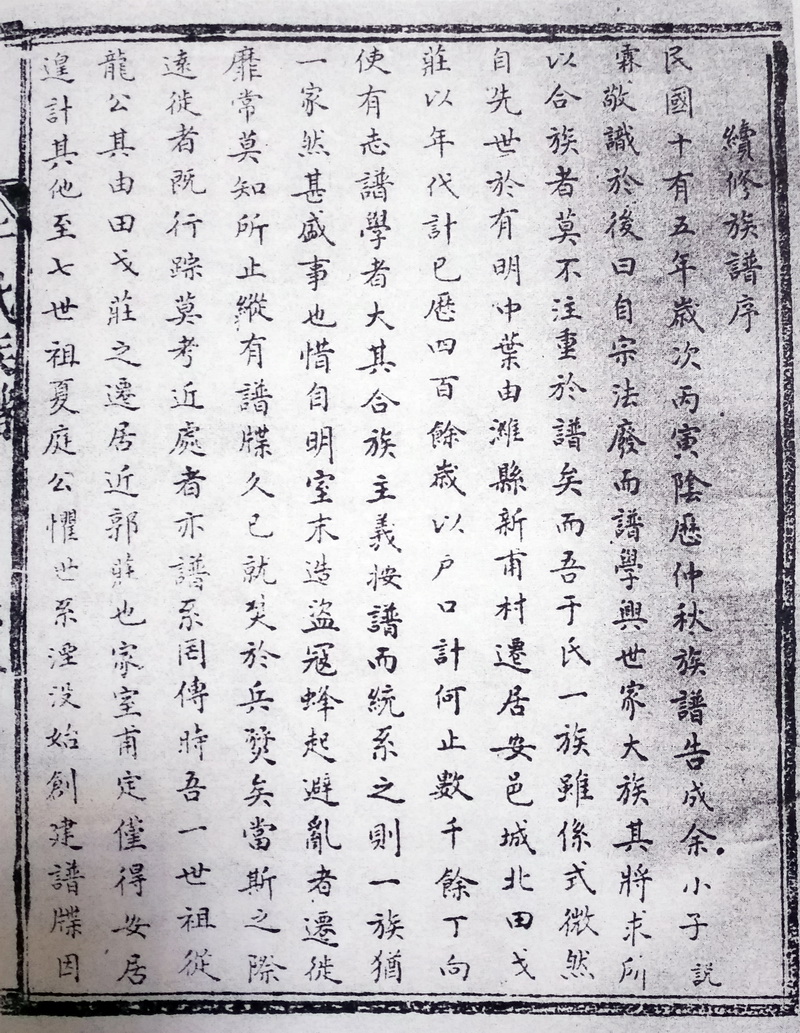 續修族譜序
民國十有五年歲次丙寅陰歷仲秋族譜告成余小子説
霖敬識於後曰自宗法廢而譜學興世家大族其將求所
以合族者莫不注重於譜矣而吾于氏一族雖係式微然
自先世於有明中葉由濰縣新甫村遷居安邑城北田戈
莊以年代計已歷四百餘歲以戶口計何止數千餘丁向
使有志譜學者大其合族主義按譜而統系之則一族猶
一家然甚盛事也惜自明室末造盜寇蜂起避亂者遷徙
靡常莫知所止縱有譜牒久已就燹於兵燹矣當斯之際
遠徙者既行踪莫考近處者亦譜系罔傳時吾一世祖從
龍公其由田戈莊之遷居近郭莊也家室甫定僅得安居
遑計其他至七世祖夏庭公懼世系湮没始創建譜牒因
氏族譜